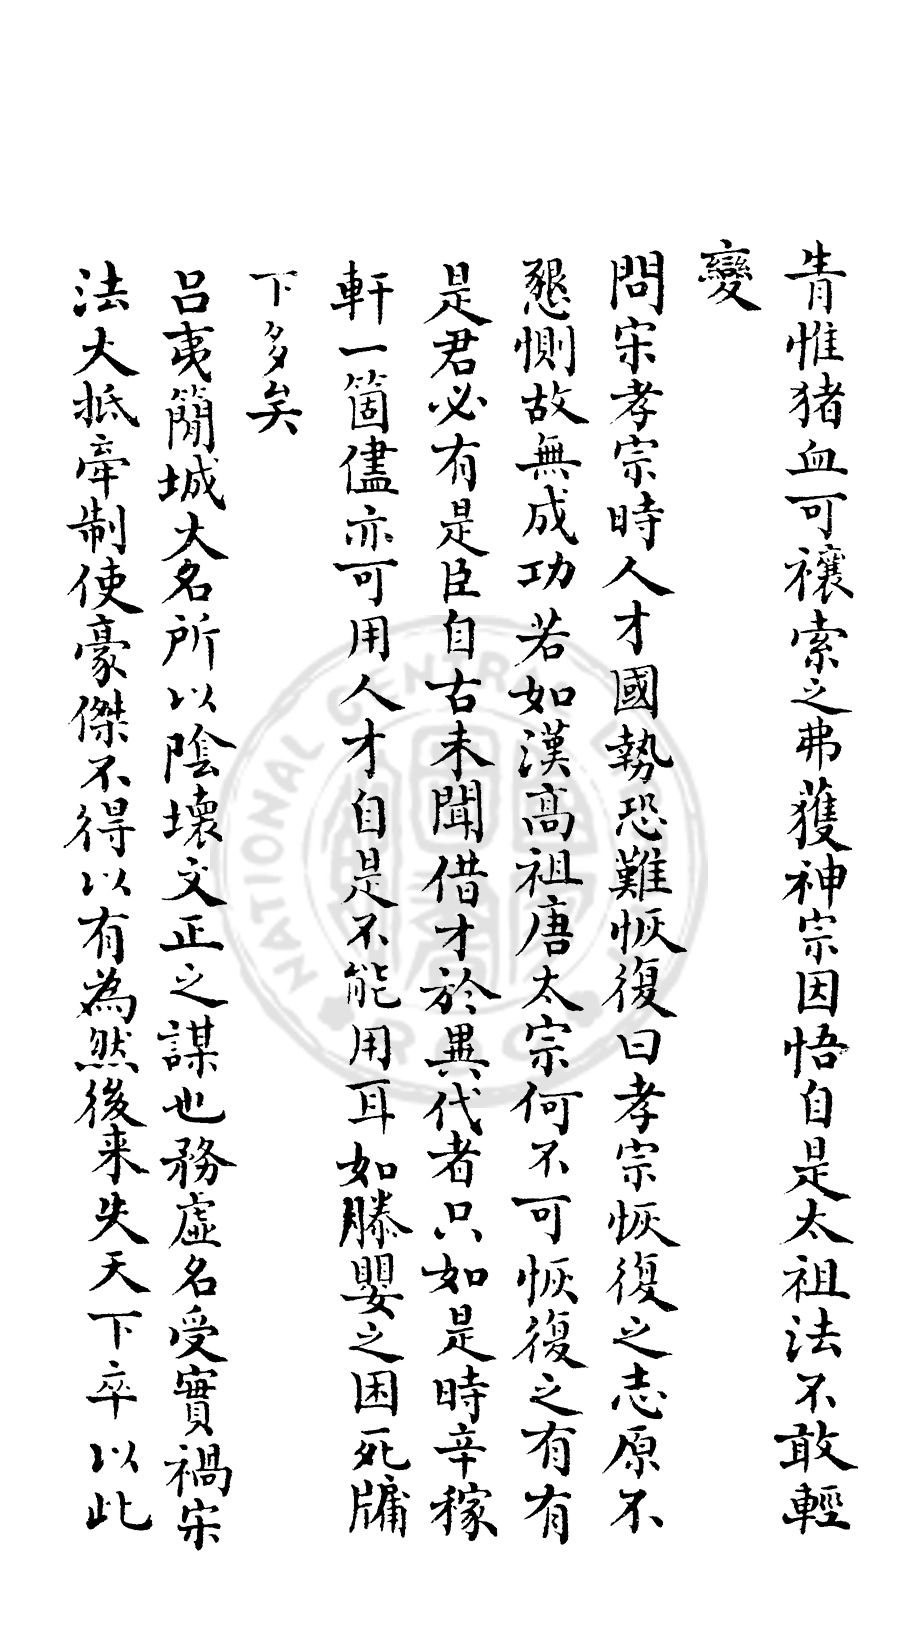 眚惟猪血可禳索之弗獲神宗因悟自是太祖法不敢輕
變
問宋孝宗時人才國勢恐難恢復曰孝宗恢復之志原不
懇惻故無成功若如漢高祖唐太宗何不可恢復之有有
是君必有是臣自古未聞借才於異代者只如是時辛稼
軒一箇儘亦可用人才自是不能用耳如滕嬰之困死牖
下多矣
呂夷簡城大名所以陰壞文正之謀也務虛名受實禍宋
法大抵牽制使豪傑不得以有為然後来失天下卒以此
NATIONAL CENTRAL LIBRARY